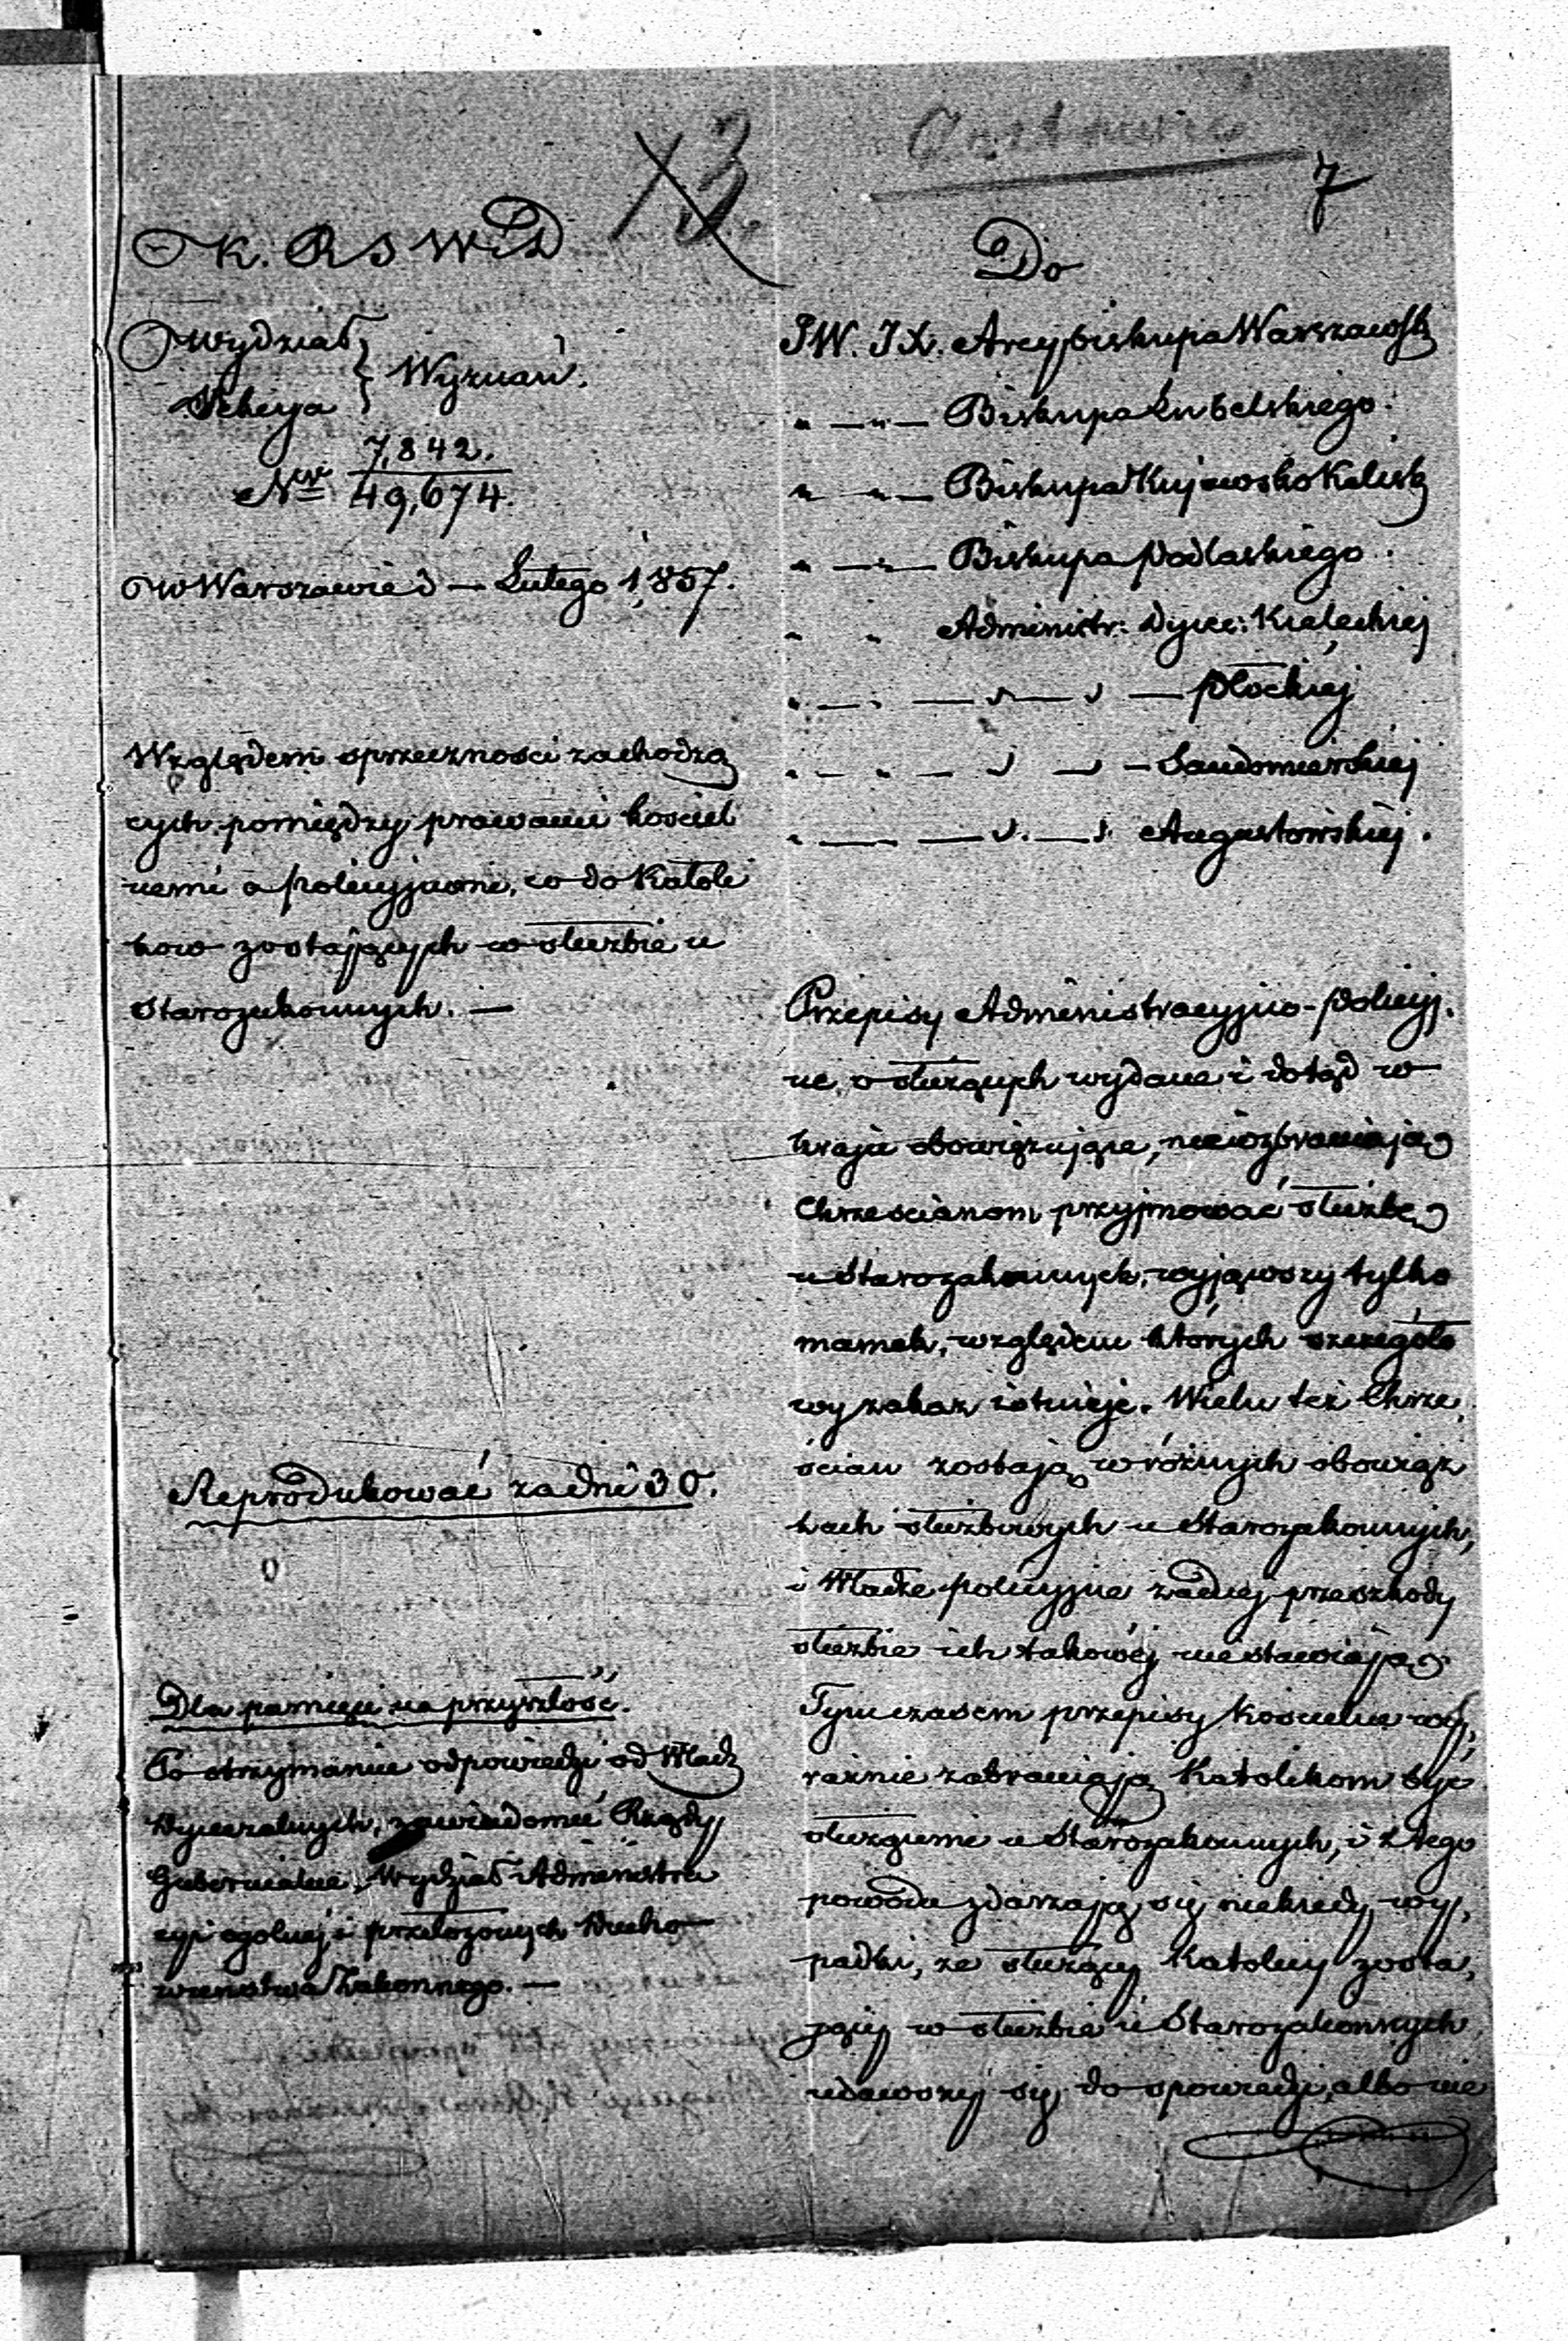 13.
7
K. R S W i D
Wydział
Sekcya } Wyznań.
7,842.
Nr 49,674.
w Warszawie d — Lutego 1,857.
Względem sprzeczności zachodzą
cych pomiędzy prawami kościel
nemi a policyjnemi, co do Katoli
ków zostających w służbie u
Starozakonnych. —
Reprodukować za dni 30.
Dla pamięci na przyszłość.
Po otrzymaniu odpowiedzi od Władz
Dyecezalnych, zawiadomić Rządy
Gubernialne, Wydział Administra
cyi ogolnej i przełożonych Ducho
wieństwa Zakonnego. —
Do
JW. JX. Arcybiskupa Warszawsk
" — " — Biskupa Lubelskiego.
" — " — Biskupa Kujawsko Kalisk
" — " — Biskupa Podlaskiego.
" " Administr: Dyec: Kieleckiej
" — " — " — " — Płockiej
" — " — " — " — Sandomierskiej
" — " — " — " Augustowskiej.
Przepisy Administracyjno-Policyj.
ne, o służących wydane i dotąd w
kraju obowiązujące, niewzbraniają
Chrześcianom przyjmować służbę
u Starozakonnych, wyjąwszy tylko
mamek, względem których szczegóło
wy zakaz istnieje. Wielu też Chrze,
ścian zostają w różnych obowiąz
kach służbowych u Starozakonnych,
i Władze policyjne żadnej przeszkody
służbie ich takowej nie stawiają.
Tymczasem przepisy Kościelne wy,
raźnie zabraniają Katolikom być
służącemi u Starozakonnych, i z tego
powodu zdarzają się niekiedy wy,
padki, że służący Katolicy zosta,
jący w służbie u Starozakonnych
udawszy się do spowiedzi, albo nie